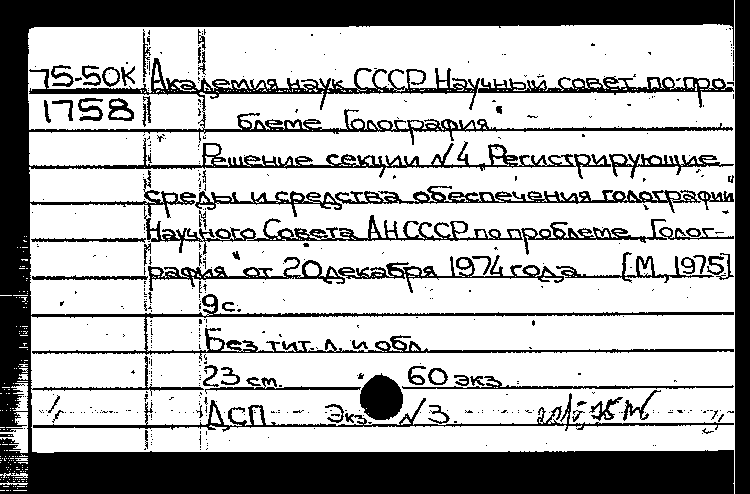 75-50К Академия наук СССР Научный совет по про-
1758 блеме „Голография“
Решение секции №4 „Регистрирующие
среды и средства обеспечения голографии“
Научного Совета АН СССР по проблеме „Голог-
рафия“ от 20 декабря 1974 года. [М., 1975]
9 с.
Без тит. л. и обл.
23 см. 60 экз.
ДСП. Экз. №3.